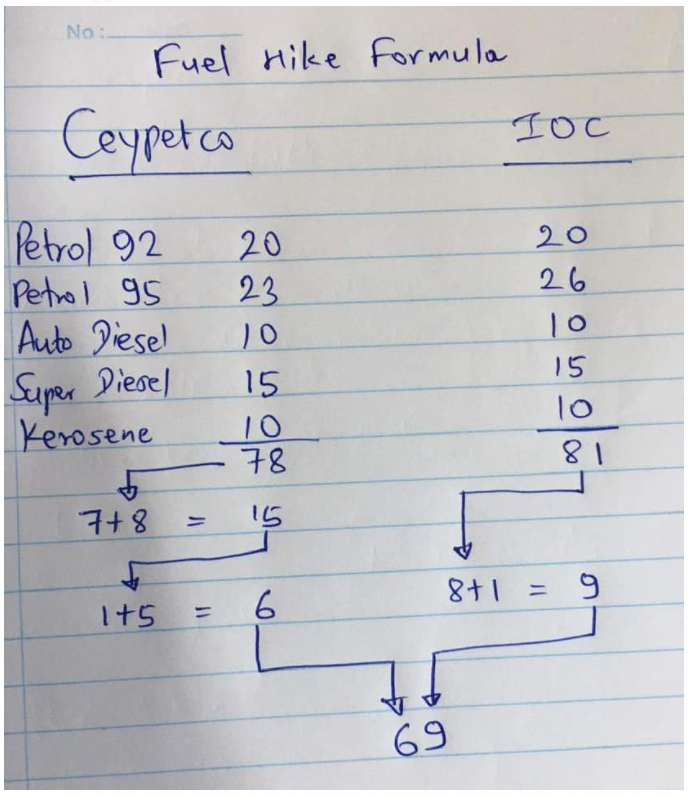 No:
Fuel Hike Formula
Ceypetco IOC
Petrol 92 20 20
Petrol 95 23 26
Auto Diesel 10 10
Super Diesel 15 15
Kerosene 10 10
78 81
7+8 = 15
1+5 = 6 8+1 = 9
69